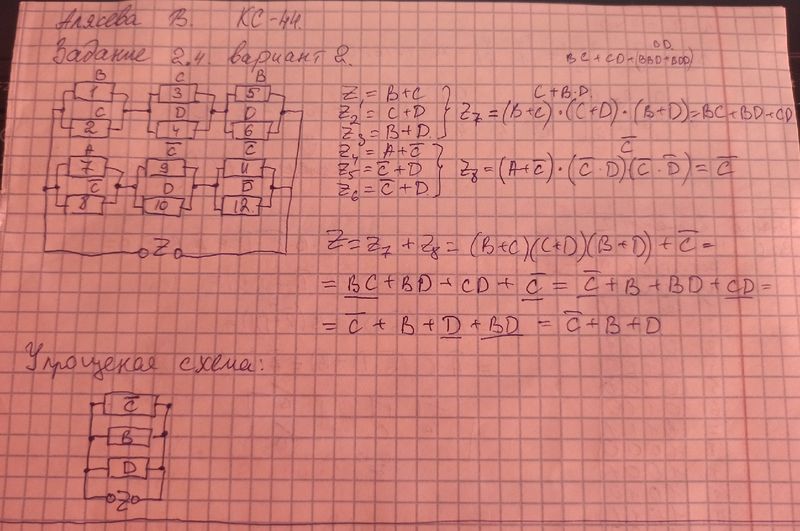 Алясева В. КС-44.
Задание 2.4. вариант 2.
BC + CD + (BBD + BDD)
B C B
1 3 5
C D D
2 4 6
A C̅ C̅
7 9 11
C̅ D D̅
8 10 12
Z
Z₁ = B+C
Z₂ = C+D
Z₃ = B+D
Z₄ = A+C̅
Z₅ = C̅+D
Z₆ = C̅+D
C+B·D
Z₇ = (B+C)·(C+D)·(B+D) = BC+BD+CD
C̅
Z₈ = (A+C̅)·(C̅·D)(C̅·D̅) = C̅
Z = Z₇ + Z₈ = (B+C)(C+D)(B+D) + C̅ =
= BC + BD + CD + C̅ = C̅ + B + BD + CD =
= C̅ + B + D + BD = C̅ + B + D
Упрощеная схема:
C̅
B
D
Z